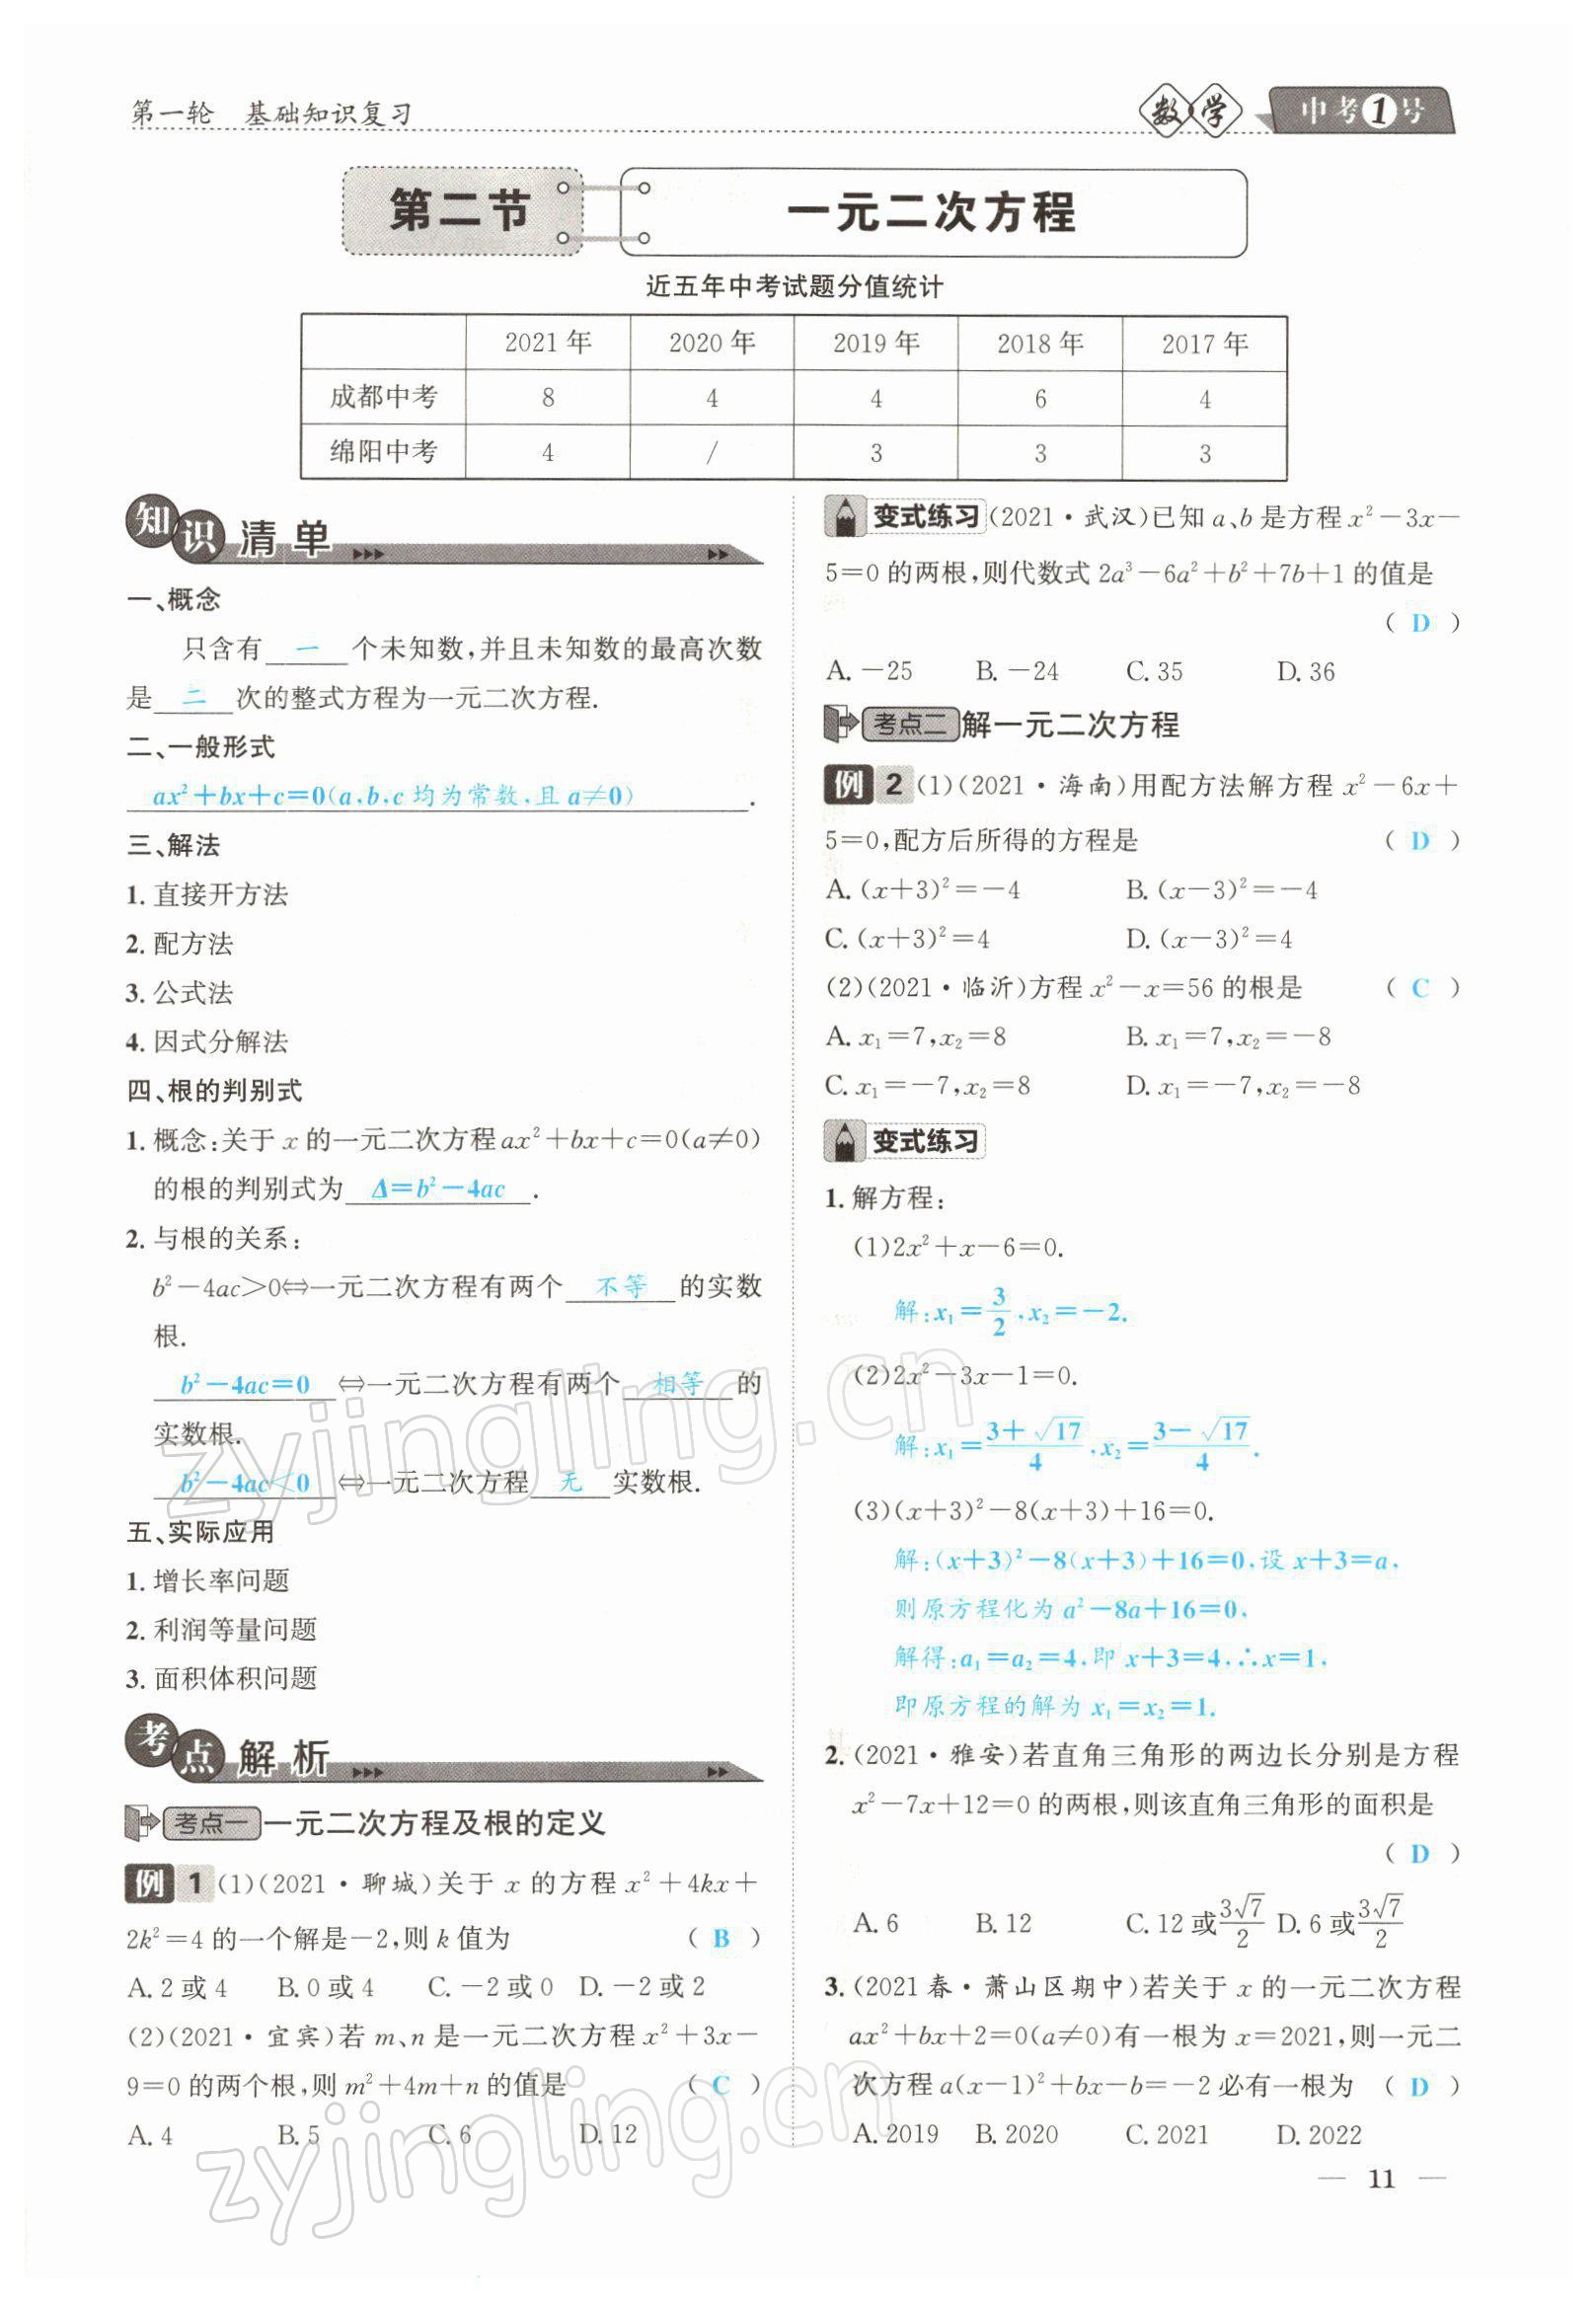 第一轮 基础知识复习
数学 中考1号
第二节 一元二次方程
近五年中考试题分值统计
2021年 2020年 2019年 2018年 2017年
成都中考 8 4 4 6 4
绵阳中考 4 / 3 3 3
知识清单
一、概念
只含有 一 个未知数,并且未知数的最高次数
是 二 次的整式方程为一元二次方程.
二、一般形式
ax²+bx+c=0(a,b,c均为常数,且a≠0).
三、解法
1. 直接开方法
2. 配方法
3. 公式法
4. 因式分解法
四、根的判别式
1. 概念:关于x的一元二次方程ax²+bx+c=0(a≠0)
的根的判别式为 Δ=b²-4ac .
2. 与根的关系:
b²-4ac>0⇔一元二次方程有两个 不等 的实数
根.
b²-4ac=0 ⇔一元二次方程有两个 相等 的
实数根.
b²-4ac<0 ⇔一元二次方程 无 实数根.
五、实际应用
1. 增长率问题
2. 利润等量问题
3. 面积体积问题
考点解析
考点一 一元二次方程及根的定义
例1 (1)(2021·聊城)关于x的方程x²+4kx+
2k²=4的一个解是-2,则k值为 ( B )
A. 2或4 B. 0或4 C. -2或0 D. -2或2
(2)(2021·宜宾)若m、n是一元二次方程x²+3x-
9=0的两个根,则m²+4m+n的值是 ( C )
A. 4 B. 5 C. 6 D. 12
变式练习 (2021·武汉)已知a、b是方程x²-3x-
5=0的两根,则代数式2a³-6a²+b²+7b+1的值是
( D )
A. -25 B. -24 C. 35 D. 36
考点二 解一元二次方程
例2 (1)(2021·海南)用配方法解方程x²-6x+
5=0,配方后所得的方程是 ( D )
A. (x+3)²=-4 B. (x-3)²=-4
C. (x+3)²=4 D. (x-3)²=4
(2)(2021·临沂)方程x²-x=56的根是 ( C )
A. x₁=7,x₂=8 B. x₁=7,x₂=-8
C. x₁=-7,x₂=8 D. x₁=-7,x₂=-8
变式练习
1. 解方程:
(1)2x²+x-6=0.
解:x₁=3/2,x₂=-2.
(2)2x²-3x-1=0.
解:x₁=(3+√17)/4,x₂=(3-√17)/4.
(3)(x+3)²-8(x+3)+16=0.
解:(x+3)²-8(x+3)+16=0,设x+3=a,
则原方程化为a²-8a+16=0,
解得:a₁=a₂=4,即x+3=4,∴x=1,
即原方程的解为x₁=x₂=1.
2. (2021·雅安)若直角三角形的两边长分别是方程
x²-7x+12=0的两根,则该直角三角形的面积是
( D )
A. 6 B. 12 C. 12或3√7/2 D. 6或3√7/2
3. (2021春·萧山区期中)若关于x的一元二次方程
ax²+bx+2=0(a≠0)有一根为x=2021,则一元二
次方程a(x-1)²+bx-b=-2必有一根为 ( D )
A. 2019 B. 2020 C. 2021 D. 2022
— 11 —
zyjingling.cn
zyjingling.cn